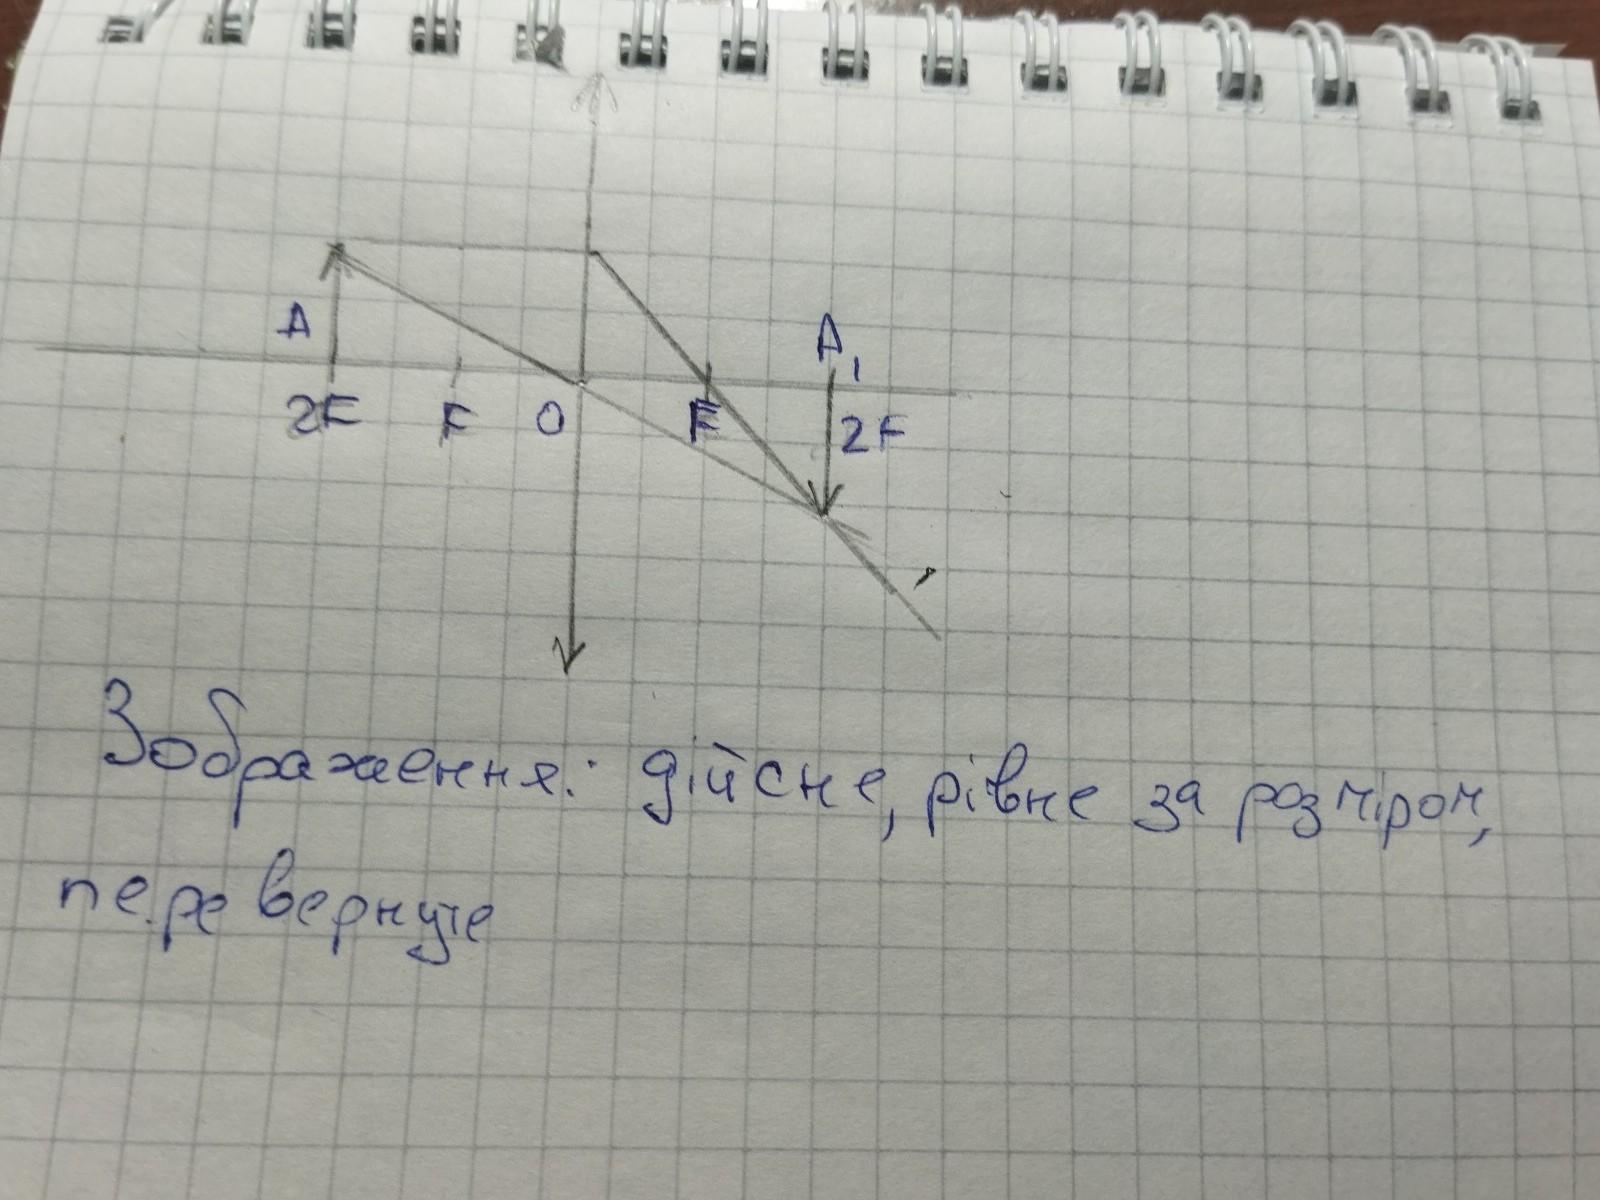 A
A₁
2F F O F 2F
Зображення: дійсне, рівне за розміром,
перевернуте